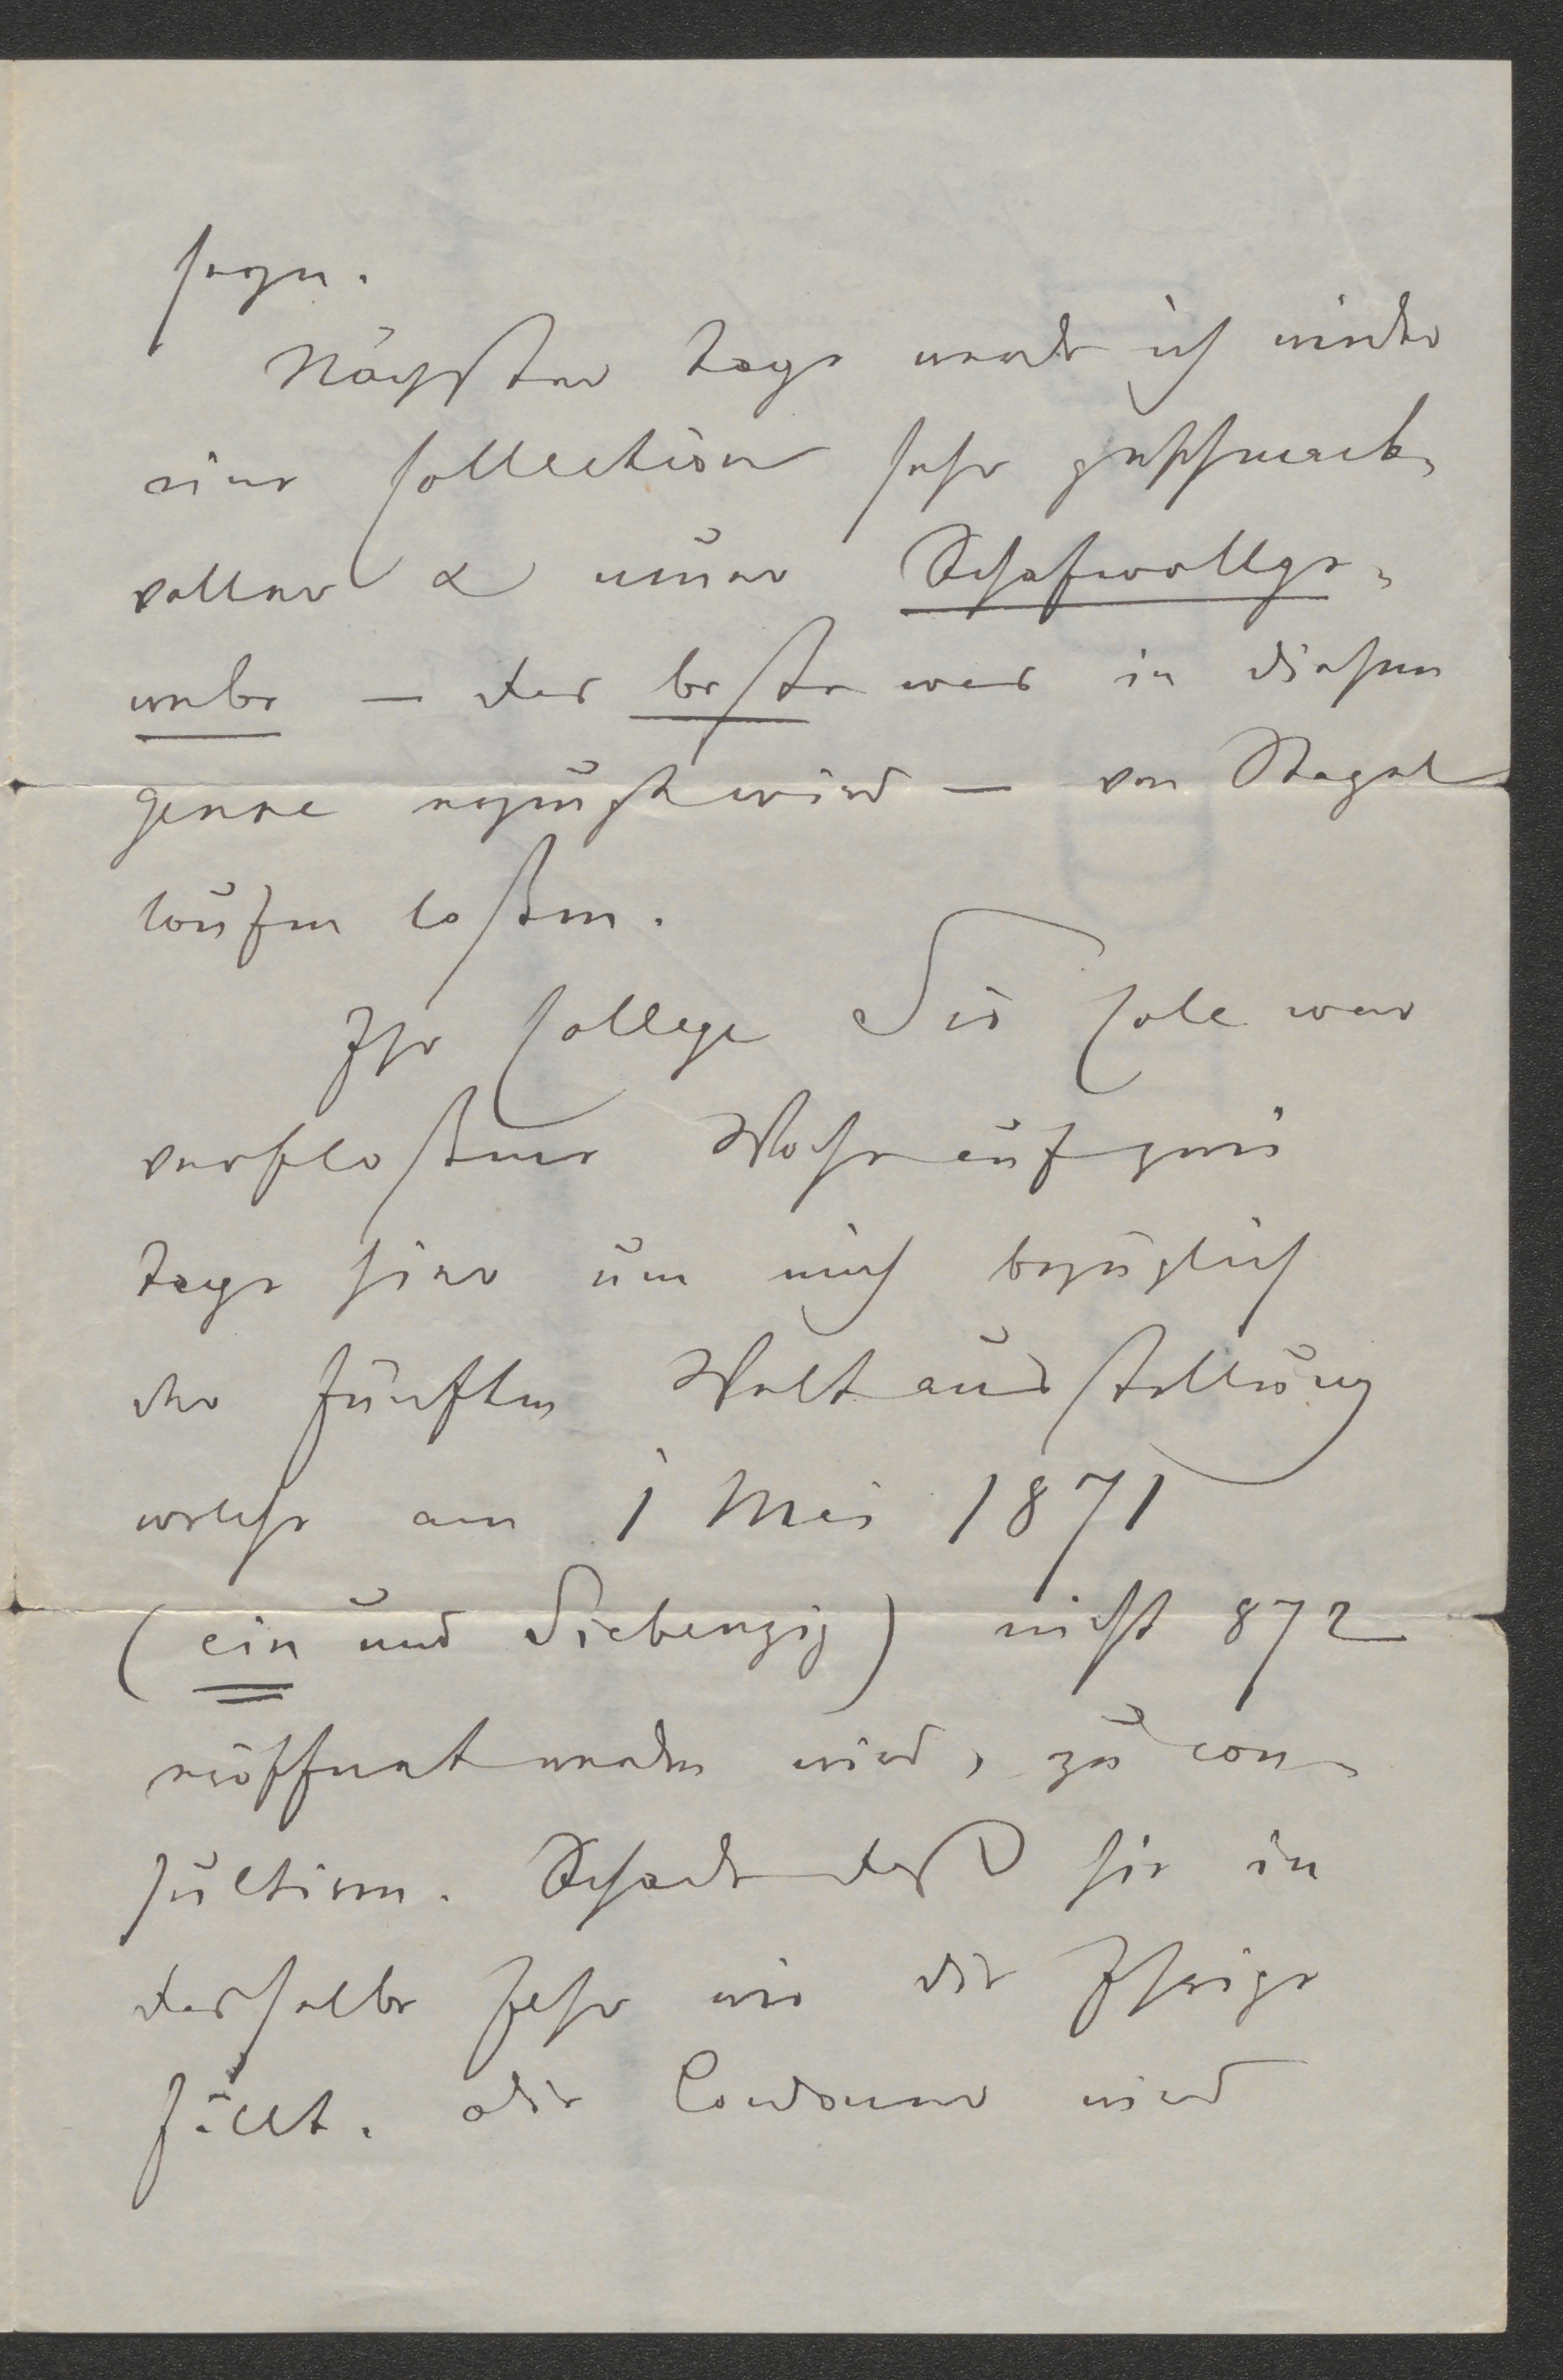 sagen.
Nächster Tage werde ich wieder
eine Collection sehr geschmack-
voller & neuer Schafwollge-
webe – das beste was in diesem
genre erzeugt wird – von Stapel
laufen laßen.
Ihr College Sir Cole war
verfloßene Woche auf zwei
Tage hier um mich bezüglich
der fünften Weltausstellung
welche am 1 Mai 1871
(ein und Siebenzig) nicht 872
eröffnet werden wird, zu con-
sultiren. Schade daß sie in
dasselbe Jahr wie die Ihrige
fällt. die Londoner wird